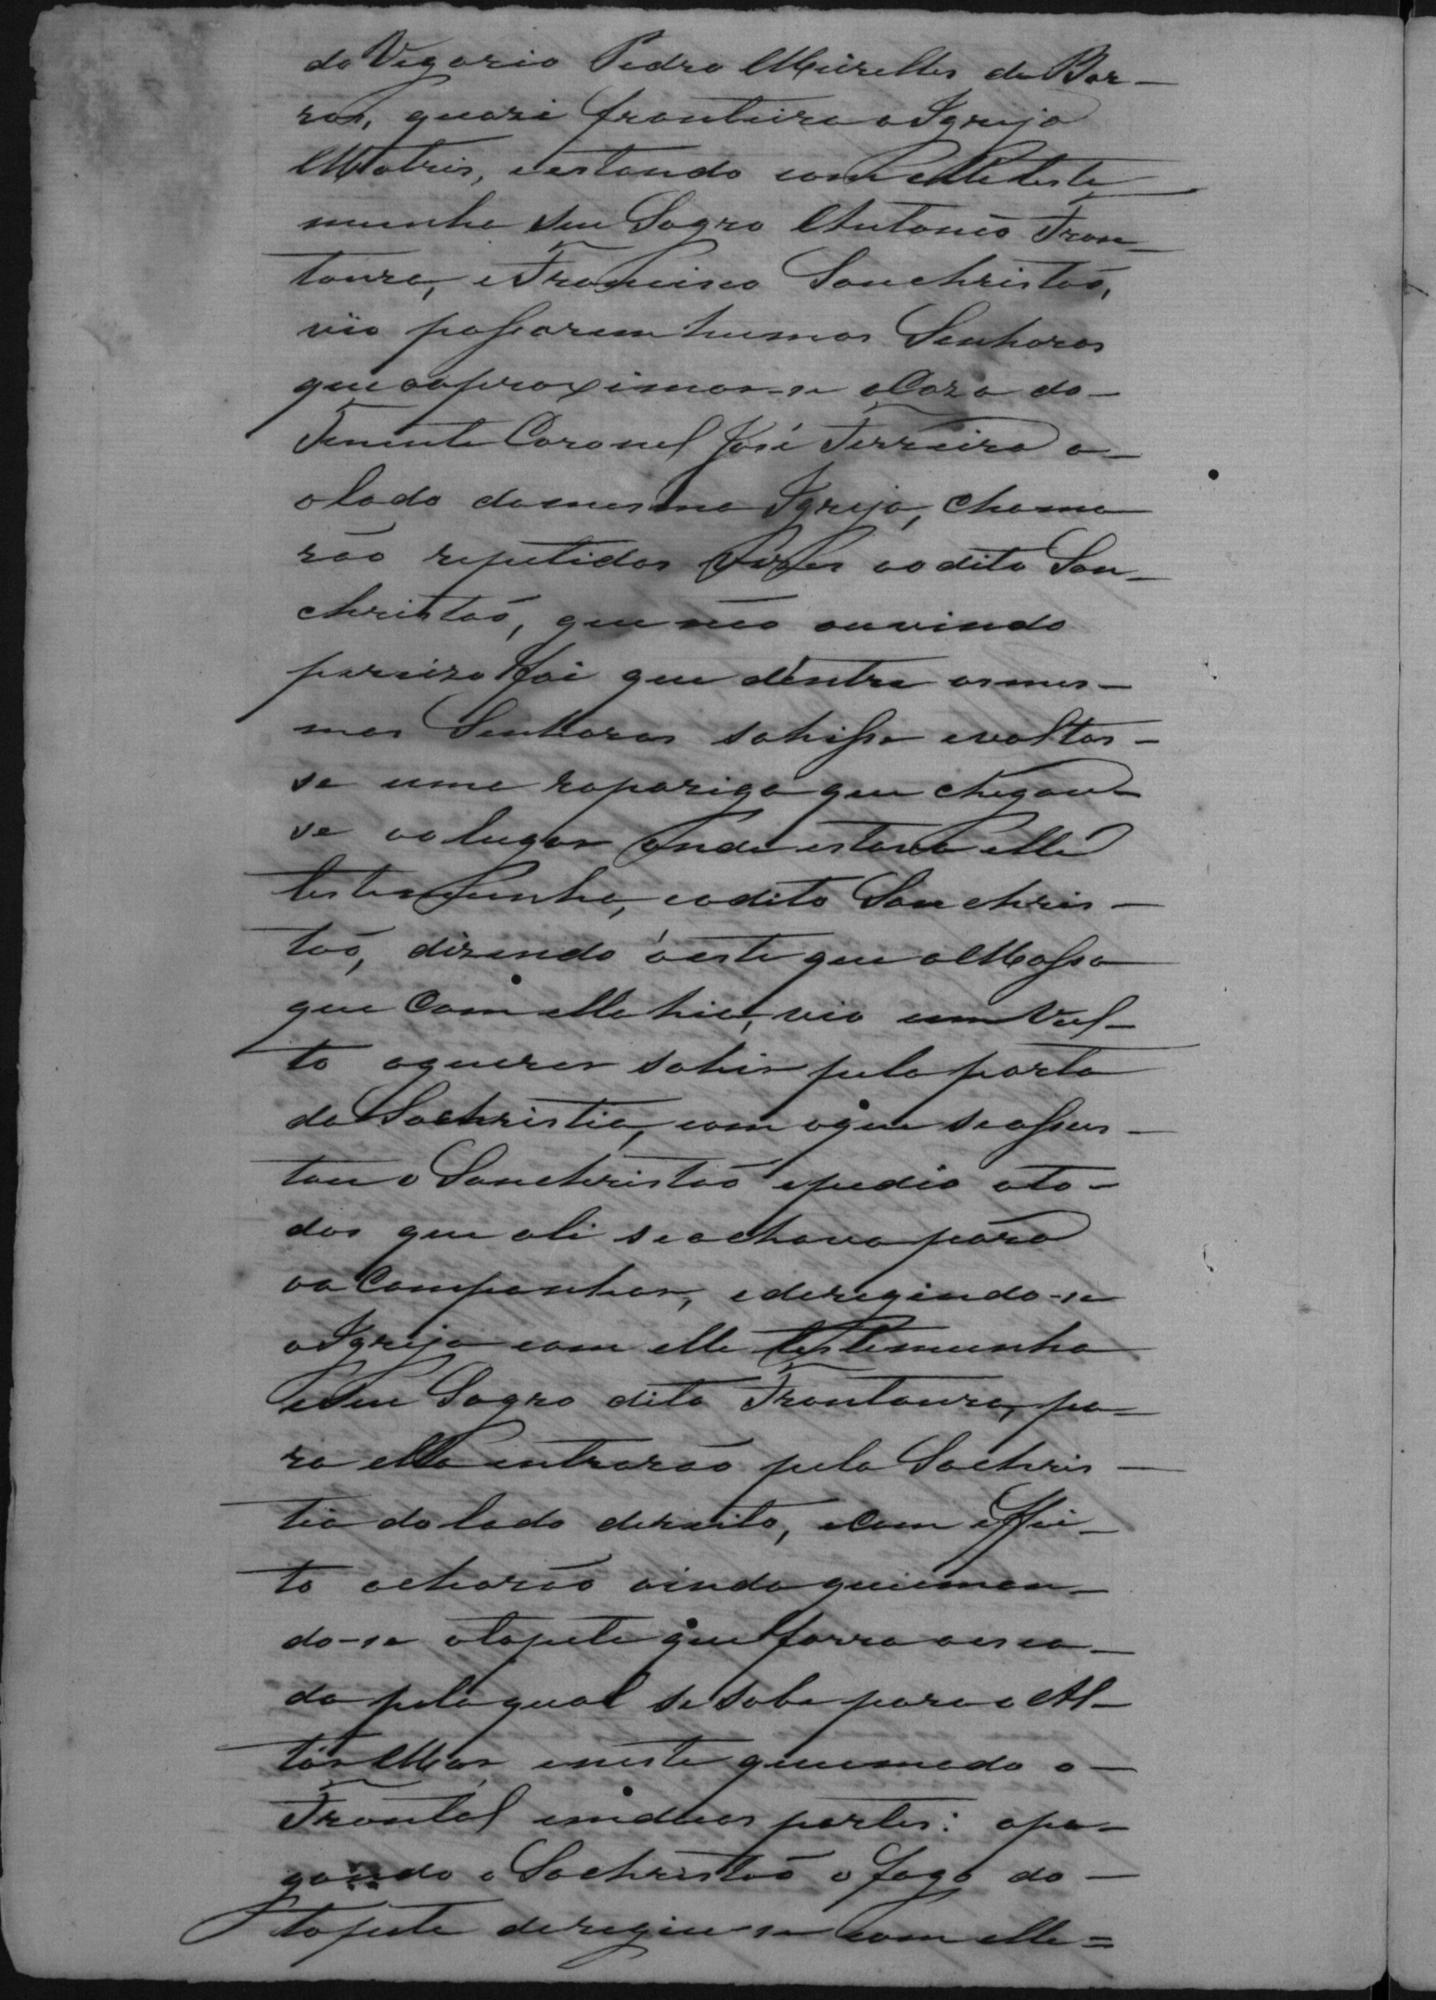 do Vegario Pedro Meirelles de Bar-
ros, quazi fronteira a Igreja
Matris, e estando com elle teste
munha seu Sogro Antonio Fron-
toura, e Francisco Sanchristão,
vio passarem humas Senhoras
que aoproximar-se a Caza do
Tenente Coronel José Ferreira a-
o lado da mesma Igreja, chama
rão repetidas vezes ao dito San-
christão, que não ouvindo
precizo foi que dentre as mes-
mas Senhoras sahisse e voltas-
se uma rapariga que chegou-
se ao lugar onde estava elle
testemunha, e o dito Sanchris-
tão, dizendo á este que a Mossa
que com ella hia, vio um Vul-
to a querer sahir pela porta
da Sachristia, com o que se assus-
tou o Sanchristão e pedio a to-
dos que ali se achava para
o a Companhar, e deregindo-se
a Igreja com elle testemunha
e seu Sogro dito Frontoura, pa-
ra ella entrarão pela Sachris-
tia do lado dereito, e Com effei-
to acharão ainda queiman-
do-se o tapete que forra a esca-
da pela qual se sobe para o Al-
tar Mor, e neste queimado o
Frontal em duas partes: apa-
gando o Sachristão o fogo do
tapete deregiu-se com elle=